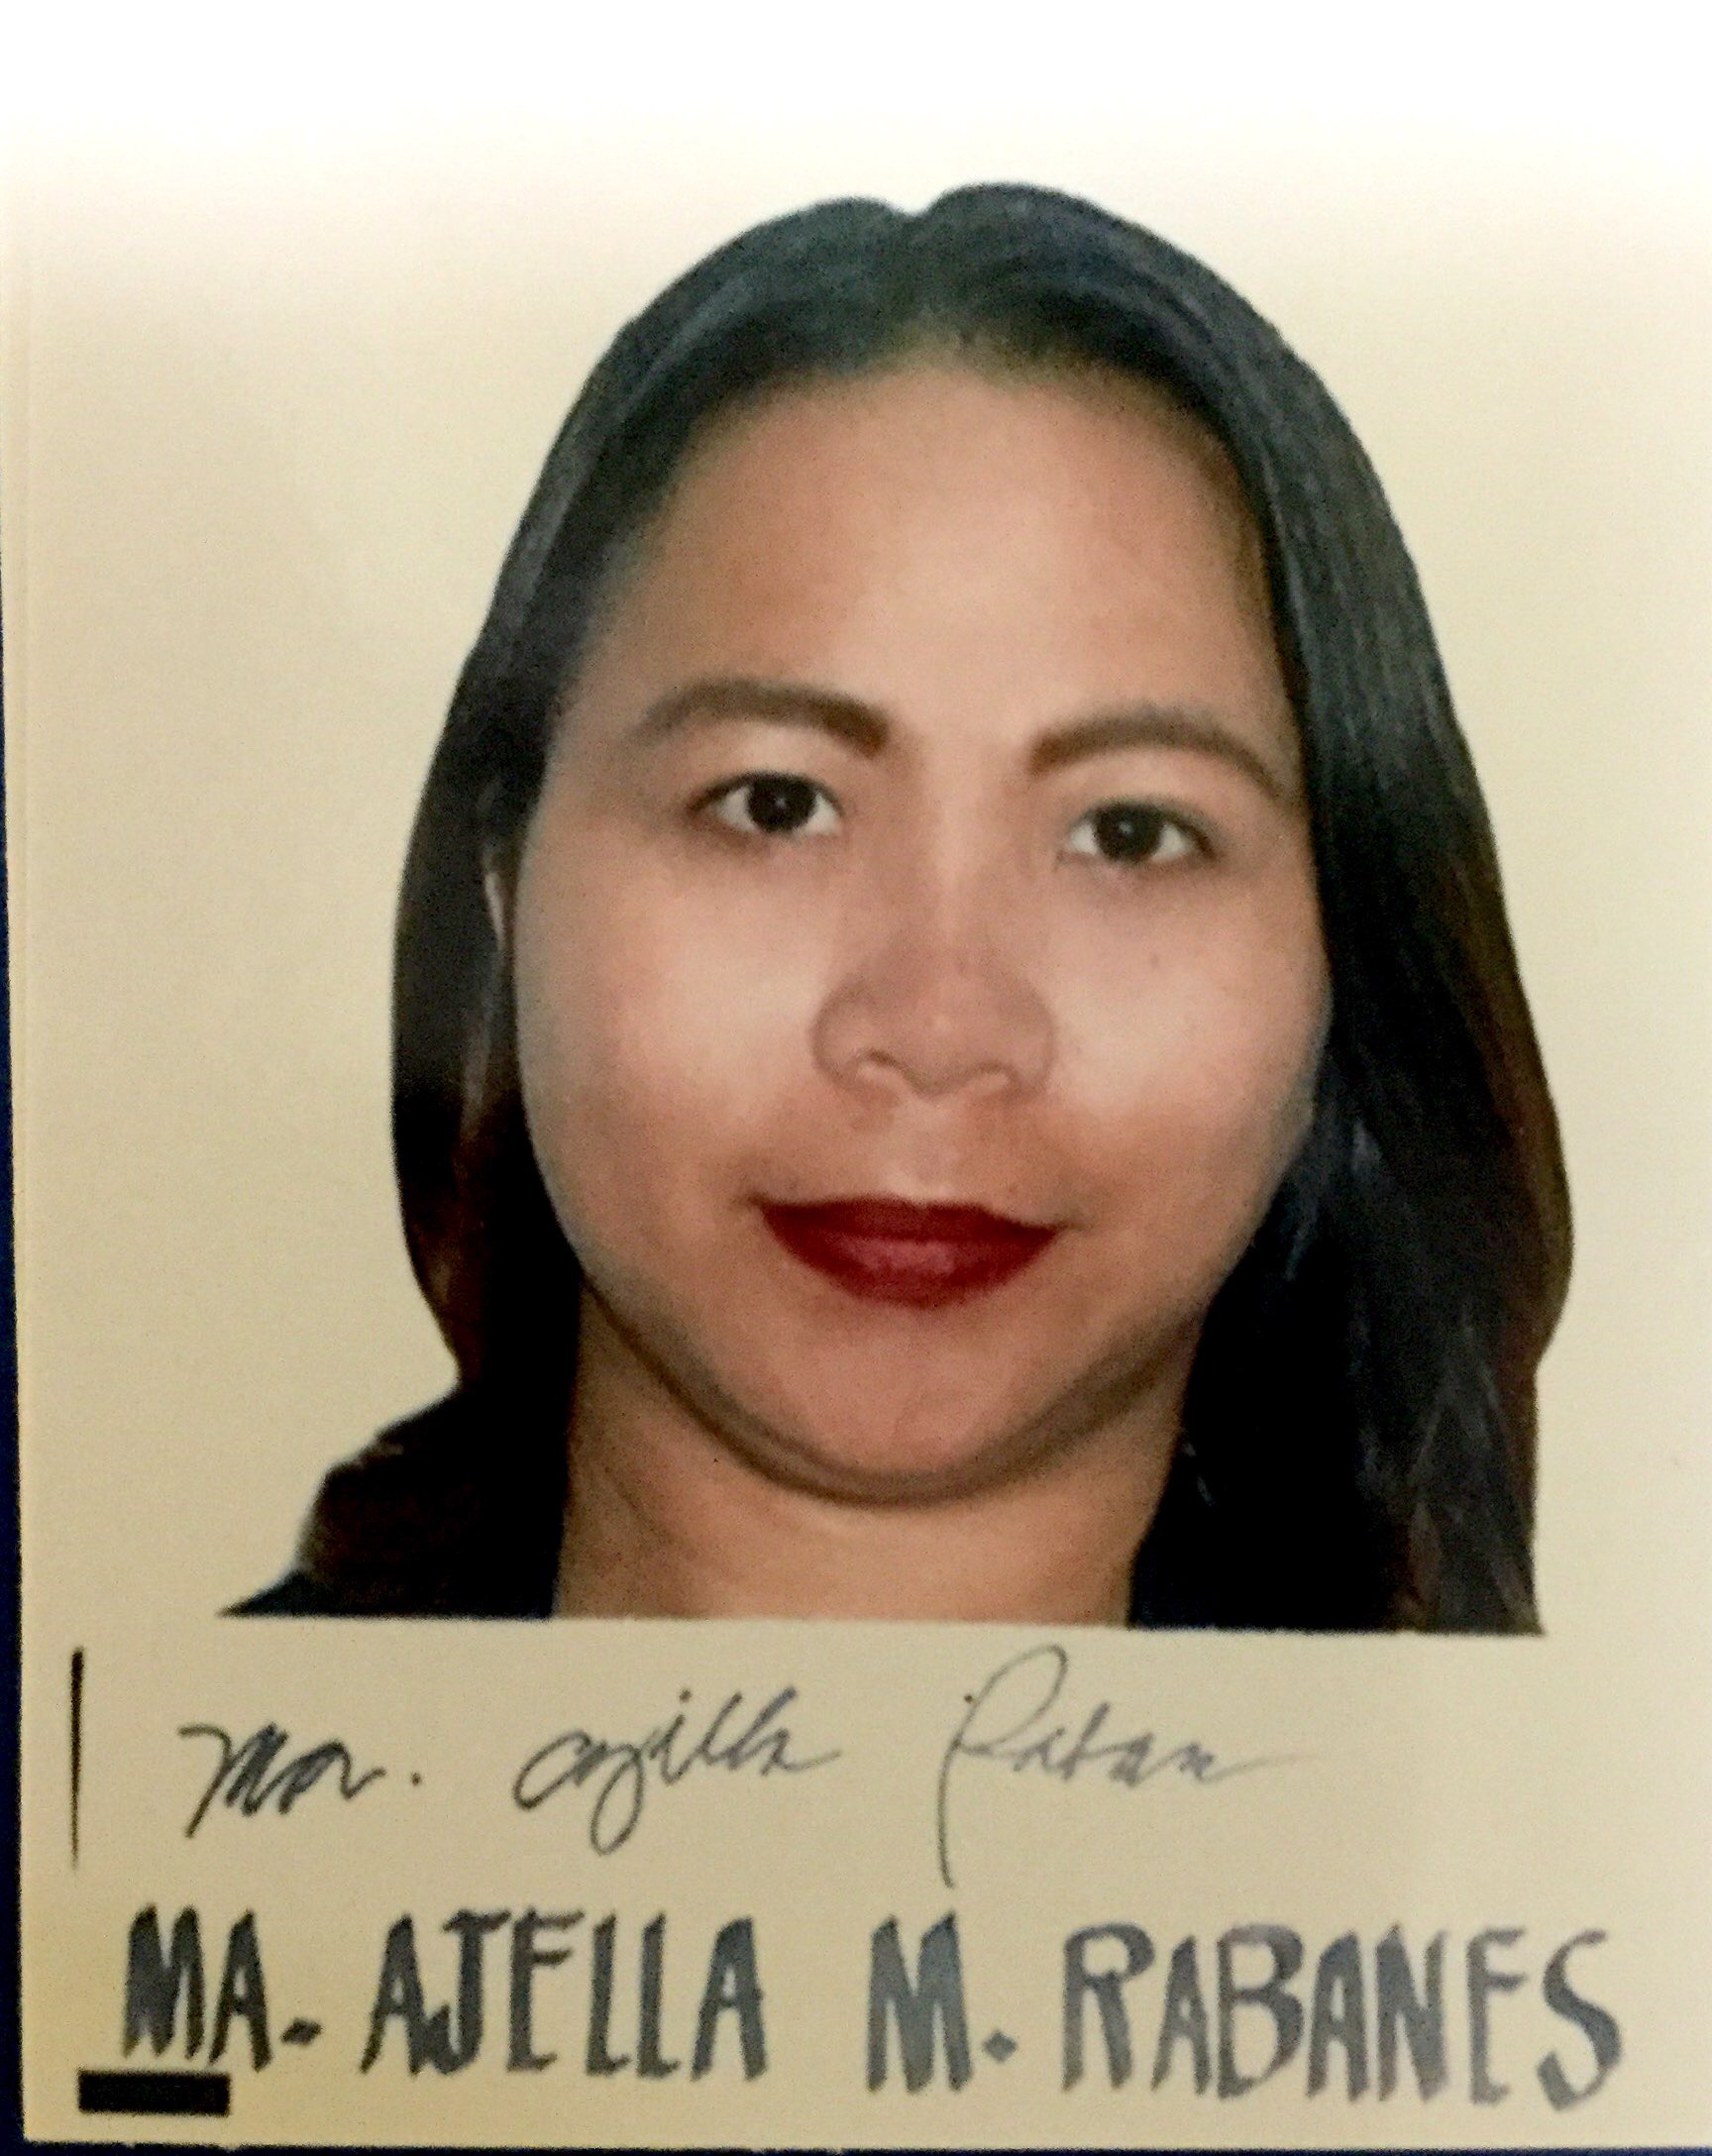 Ma. Ajella Raban
MA. AJELLA M. RABANES